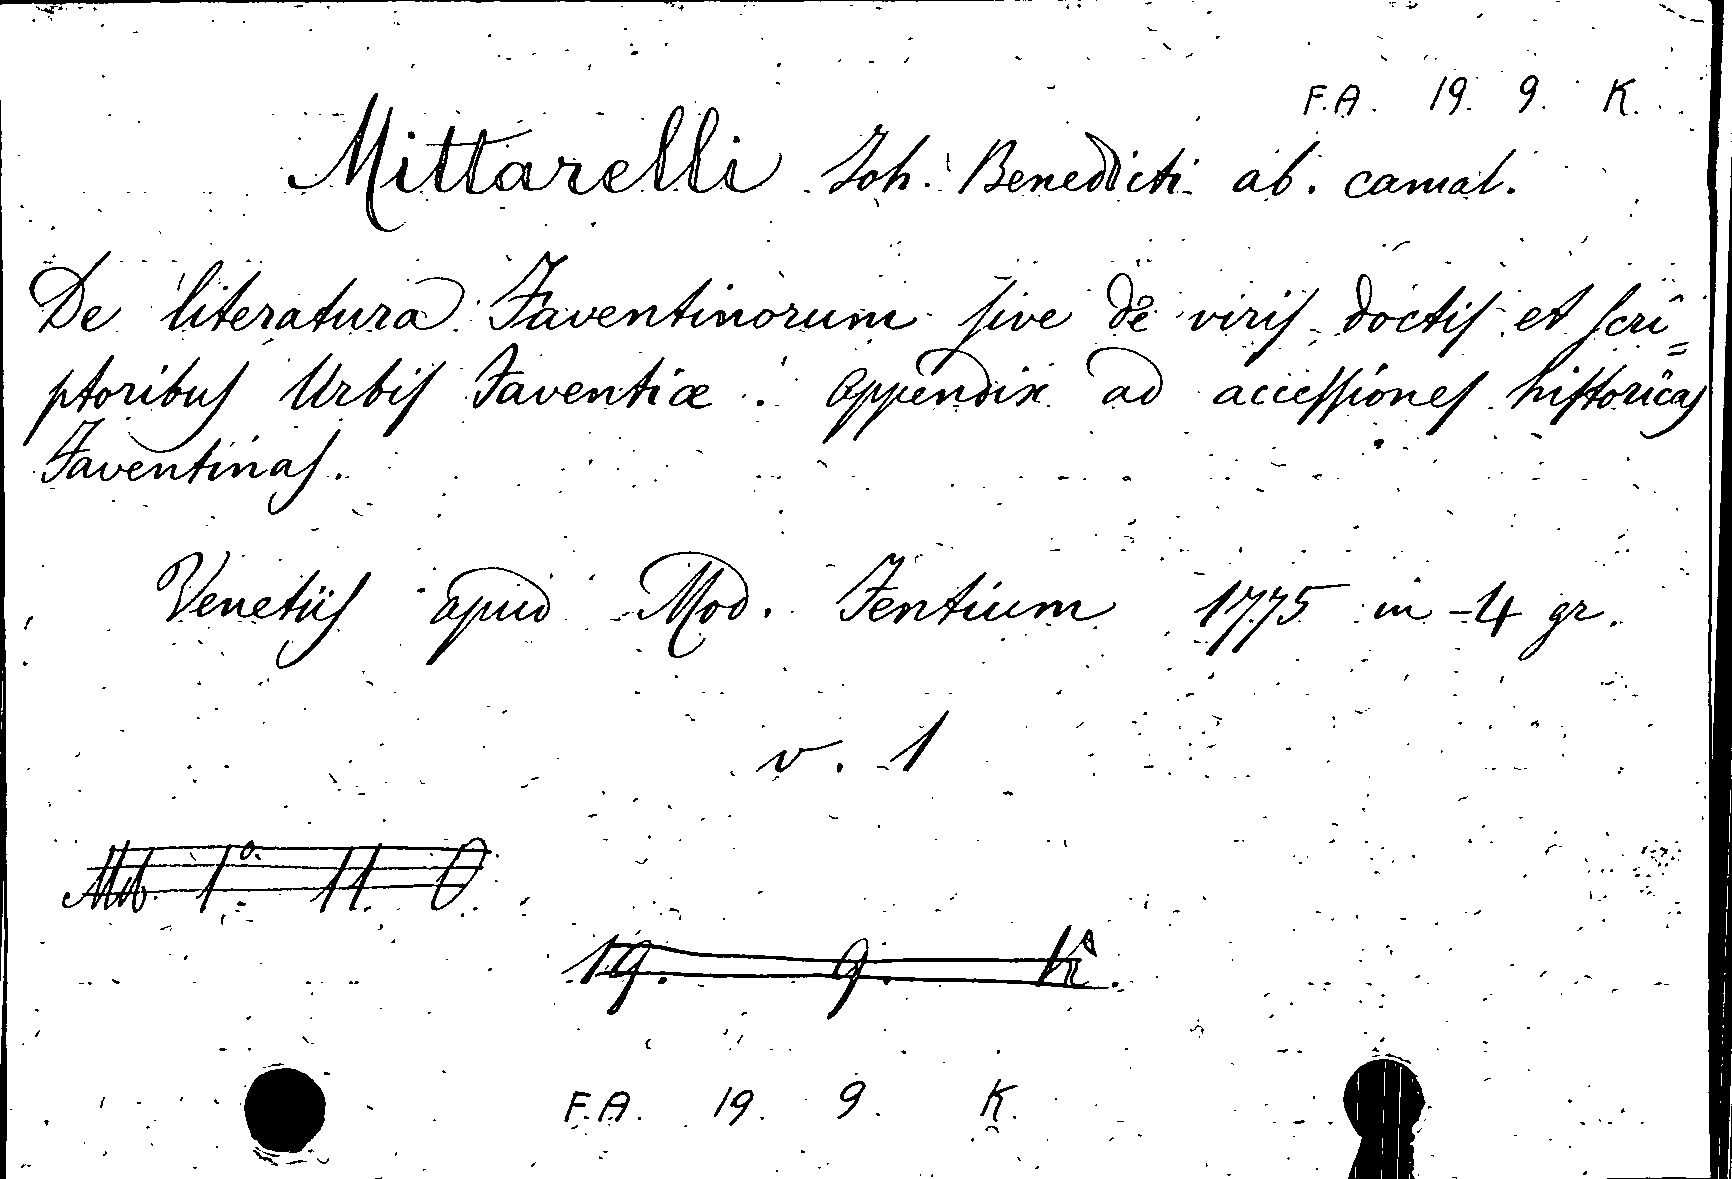 F.A. 19. 9. K.
Mittarelli Joh. Benedicti ab. camal.
De literatura Faventinorum sive de viris doctis et scri=
ptoribus Urbis Faventiæ. Appendix ad accessiones historicas
Faventinas.
Venetiis apud Mod. Fentium 1775 in-4 gr.
v. 1
1° 11 O
19. 9. K.
F.A. 19. 9. K.